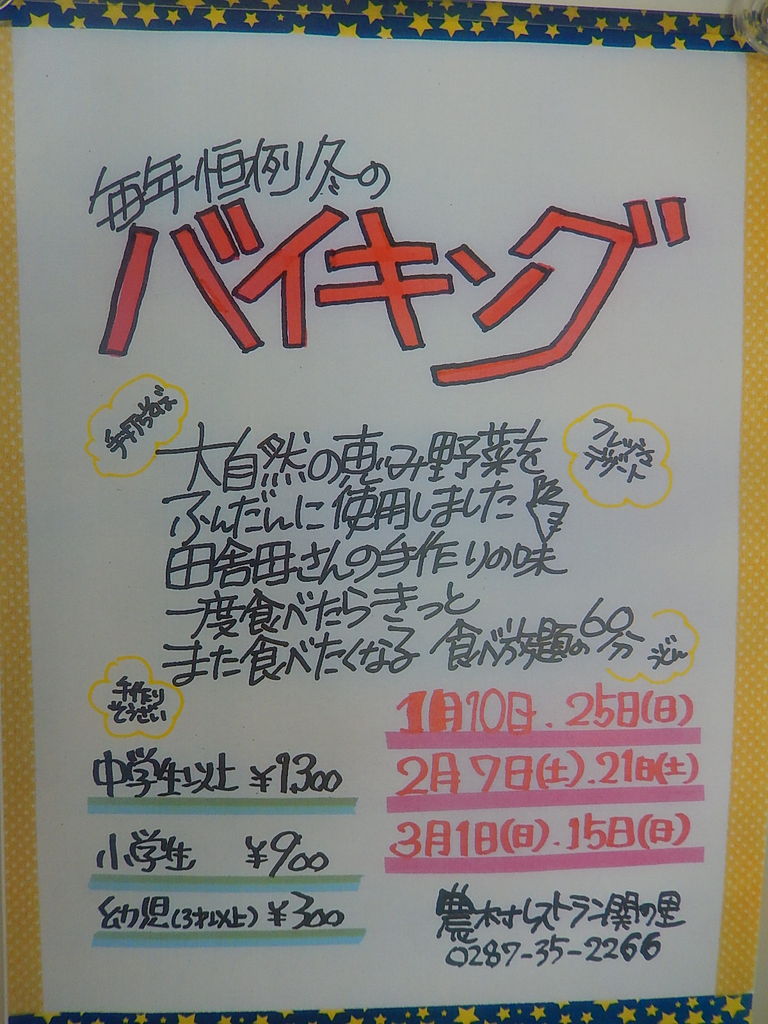 毎年恒例冬の
バイキング
手打そば
フレッシュ
デザート
大自然の恵み野菜を
ふんだんに使用しました
田舎母さんの手作りの味
一度食べたらきっと
また食べたくなる 食べ放題の60分
うどん
手作り
そうざい
1月10日.25日(日)
2月7日(土).21日(土)
3月1日(日).15日(日)
中学生以上 ¥1,300
小学生 ¥900
幼児(3才以上) ¥300
農村レストラン関の里
0287-35-2266